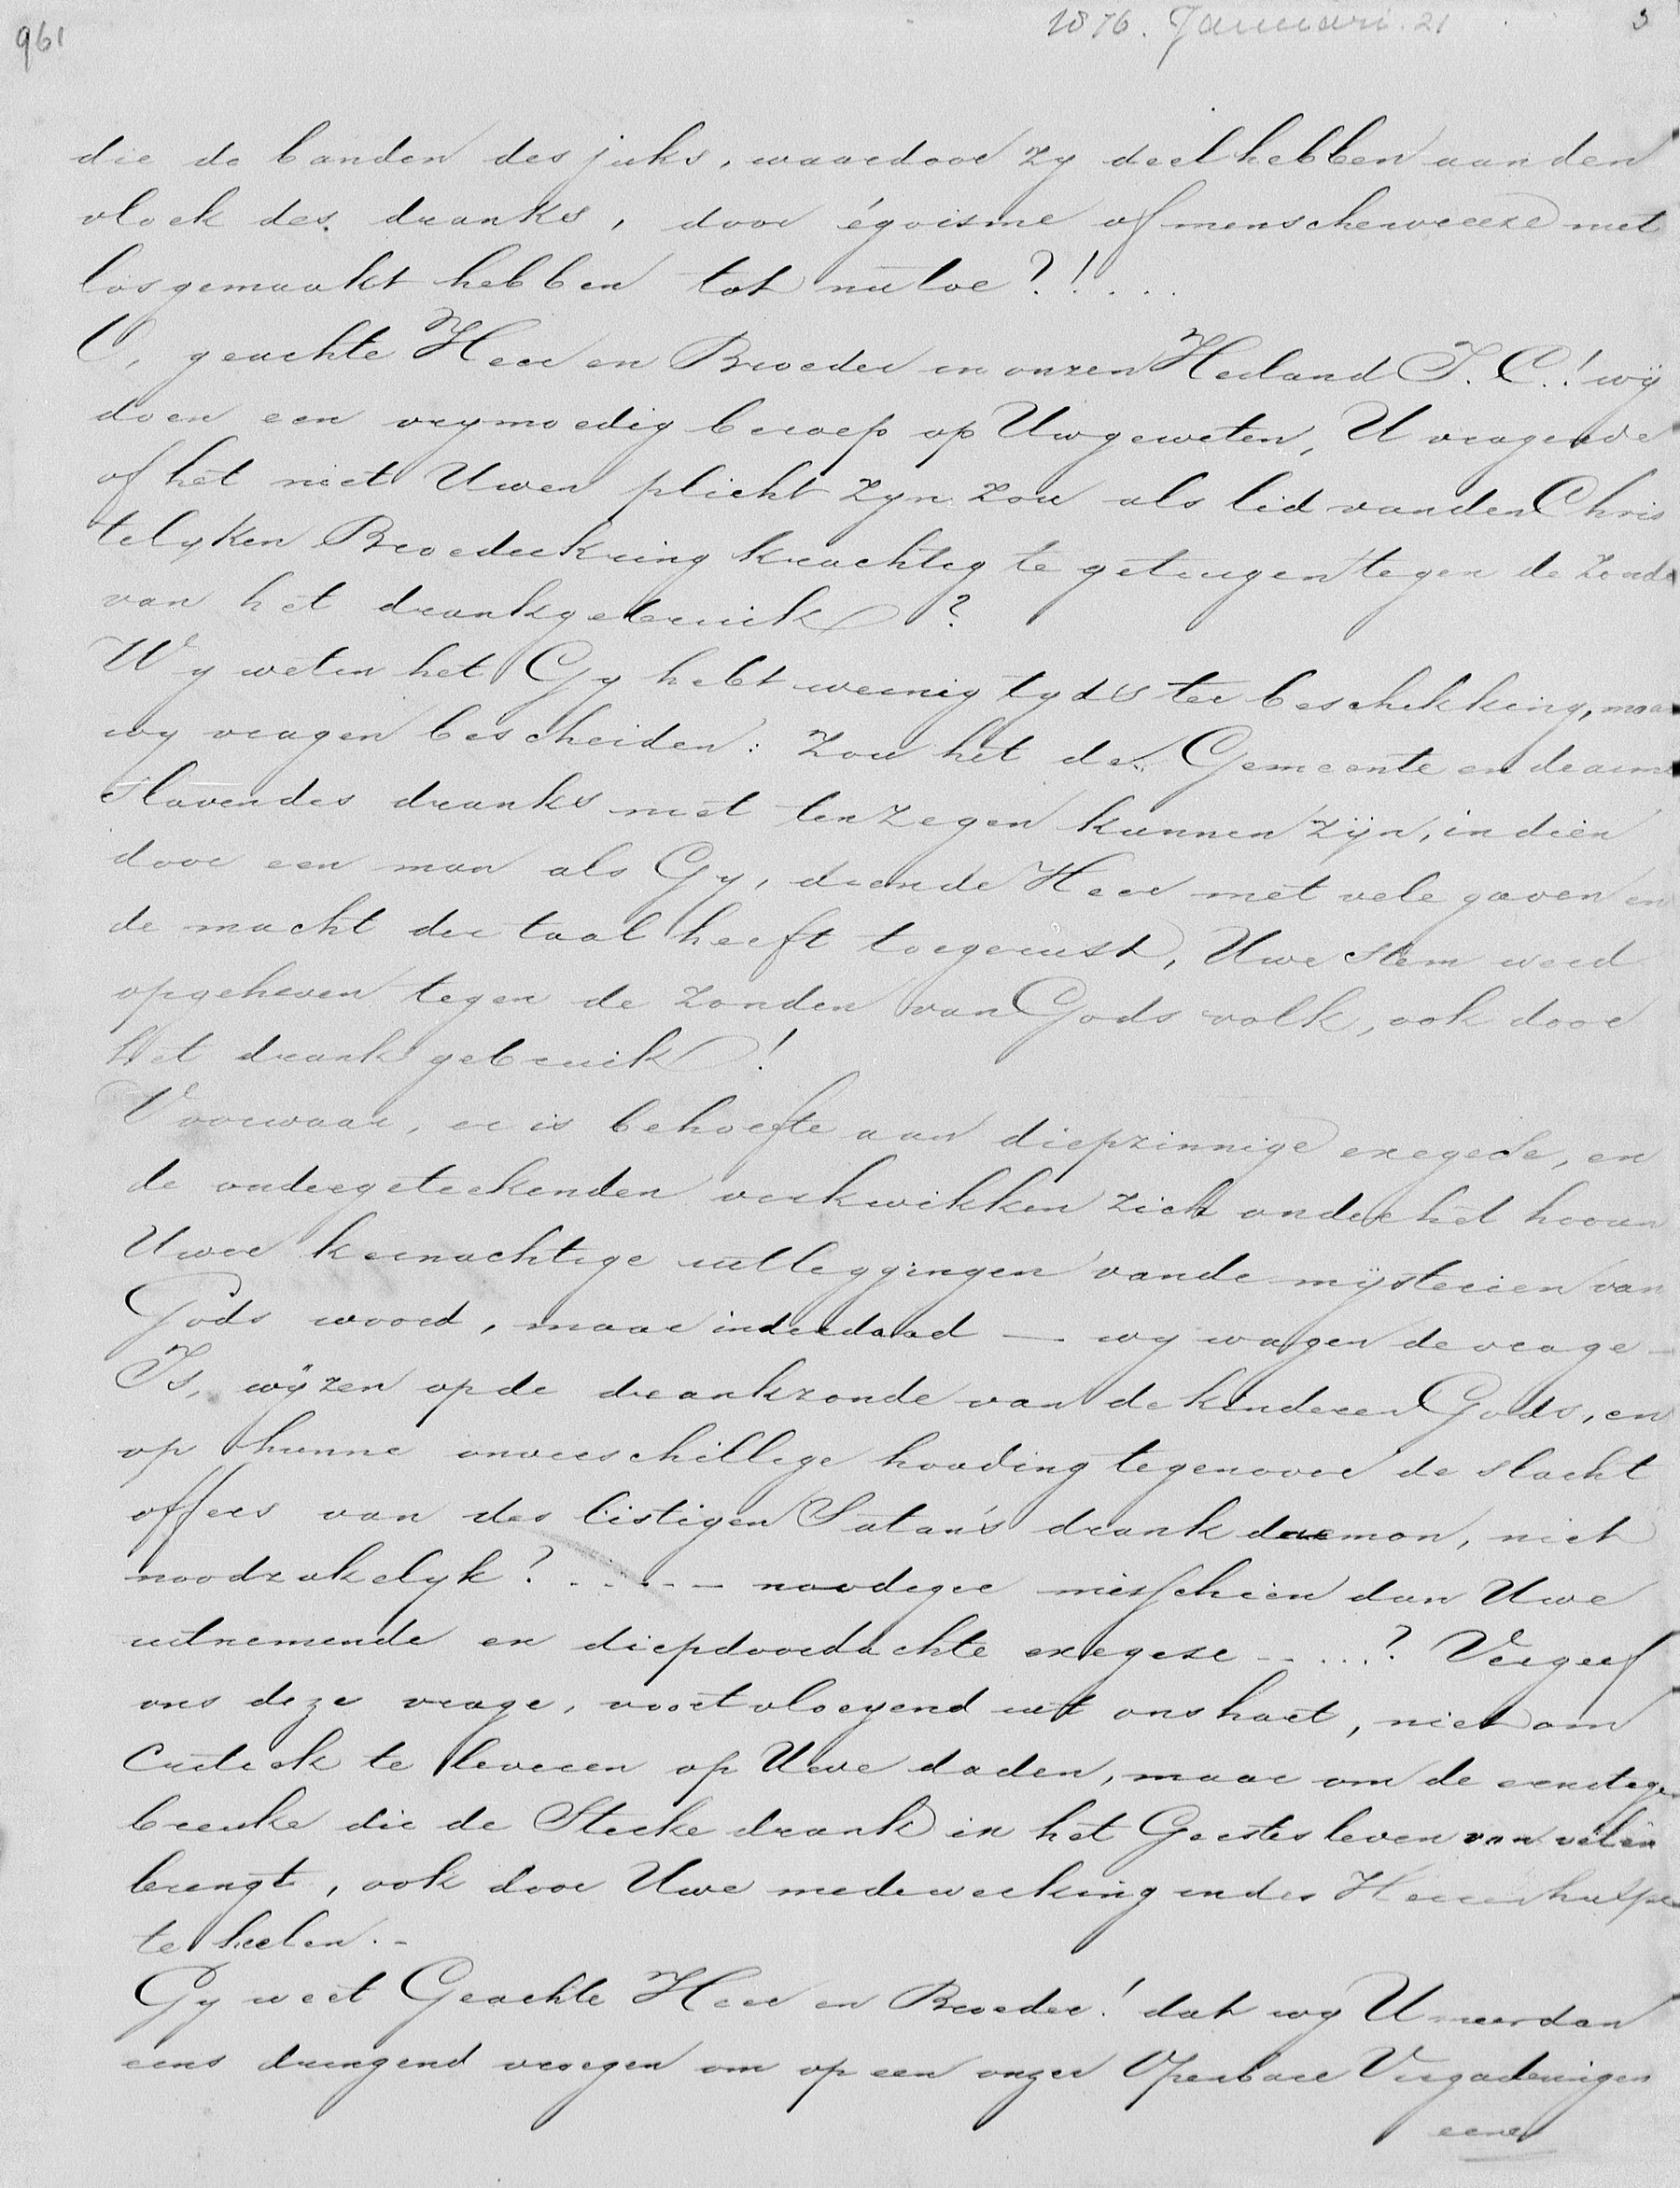 961
1876. Januari. 21
3
die de banden des juks, waardoor zy deel hebben aan den
vloek des dranks, door égoisme of menschenvreeze niet
losgemaakt hebben tot nu toe?!...
O, geachte Heer en Broeder in onzen Heiland J. C.! wij
doen een vrymoedig beroep op Uw geweten, U vragende
of het niet Uwen plicht zyn zou als lid van den Chris
telyken Broederkring krachtig te getuigen tegen de zonde
van het drankgebruik?
Wy weten het Gy hebt weinig tyds ter beschikking, maar
wy vragen bescheiden: Zou het der Gemeente en de arme
slaven des dranks niet ten zegen kunnen zijn, indien
door een man als Gy, dien de Heer met vele gaven en
de macht der taal heeft toegerust, Uwe stem werd
opgeheven tegen de zonden van Gods volk, ook door
het drankgebruik!
Voorwaar, er is behoefte aan diepzinnige exegese, en
de ondergeteekenden verkwikken zich onder het hooren
Uwer kernachtige uitleggingen van de mijsterien van
Gods woord, maar inderdaad — wy wagen de vrage —
Is, wijzen op de drankzonde van de kinderen Gods, en
op hunne onverschillige houding tegenover de slacht
offers van des listigen Satan's drank daemon, niet
noodzakelyk?...... noodiger misschien dan Uwe
uitnemende en diepdoordachte exegese.....? Vergeef
ons deze vrage, voortvloeyend uit ons hart, niet om
Critiek te leveren op Uwe daden, maar om de ernstige
breuke die de Sterke drank in het Geestesleven van velen
brengt, ook door Uwe medewerking en des Heeren hulpe
te heelen.-
Gy weet Geachte Heer en Broeder! dat wy U meer dan
eens dringend vroegen om op een onzer Openbare Vergaderingen
eene